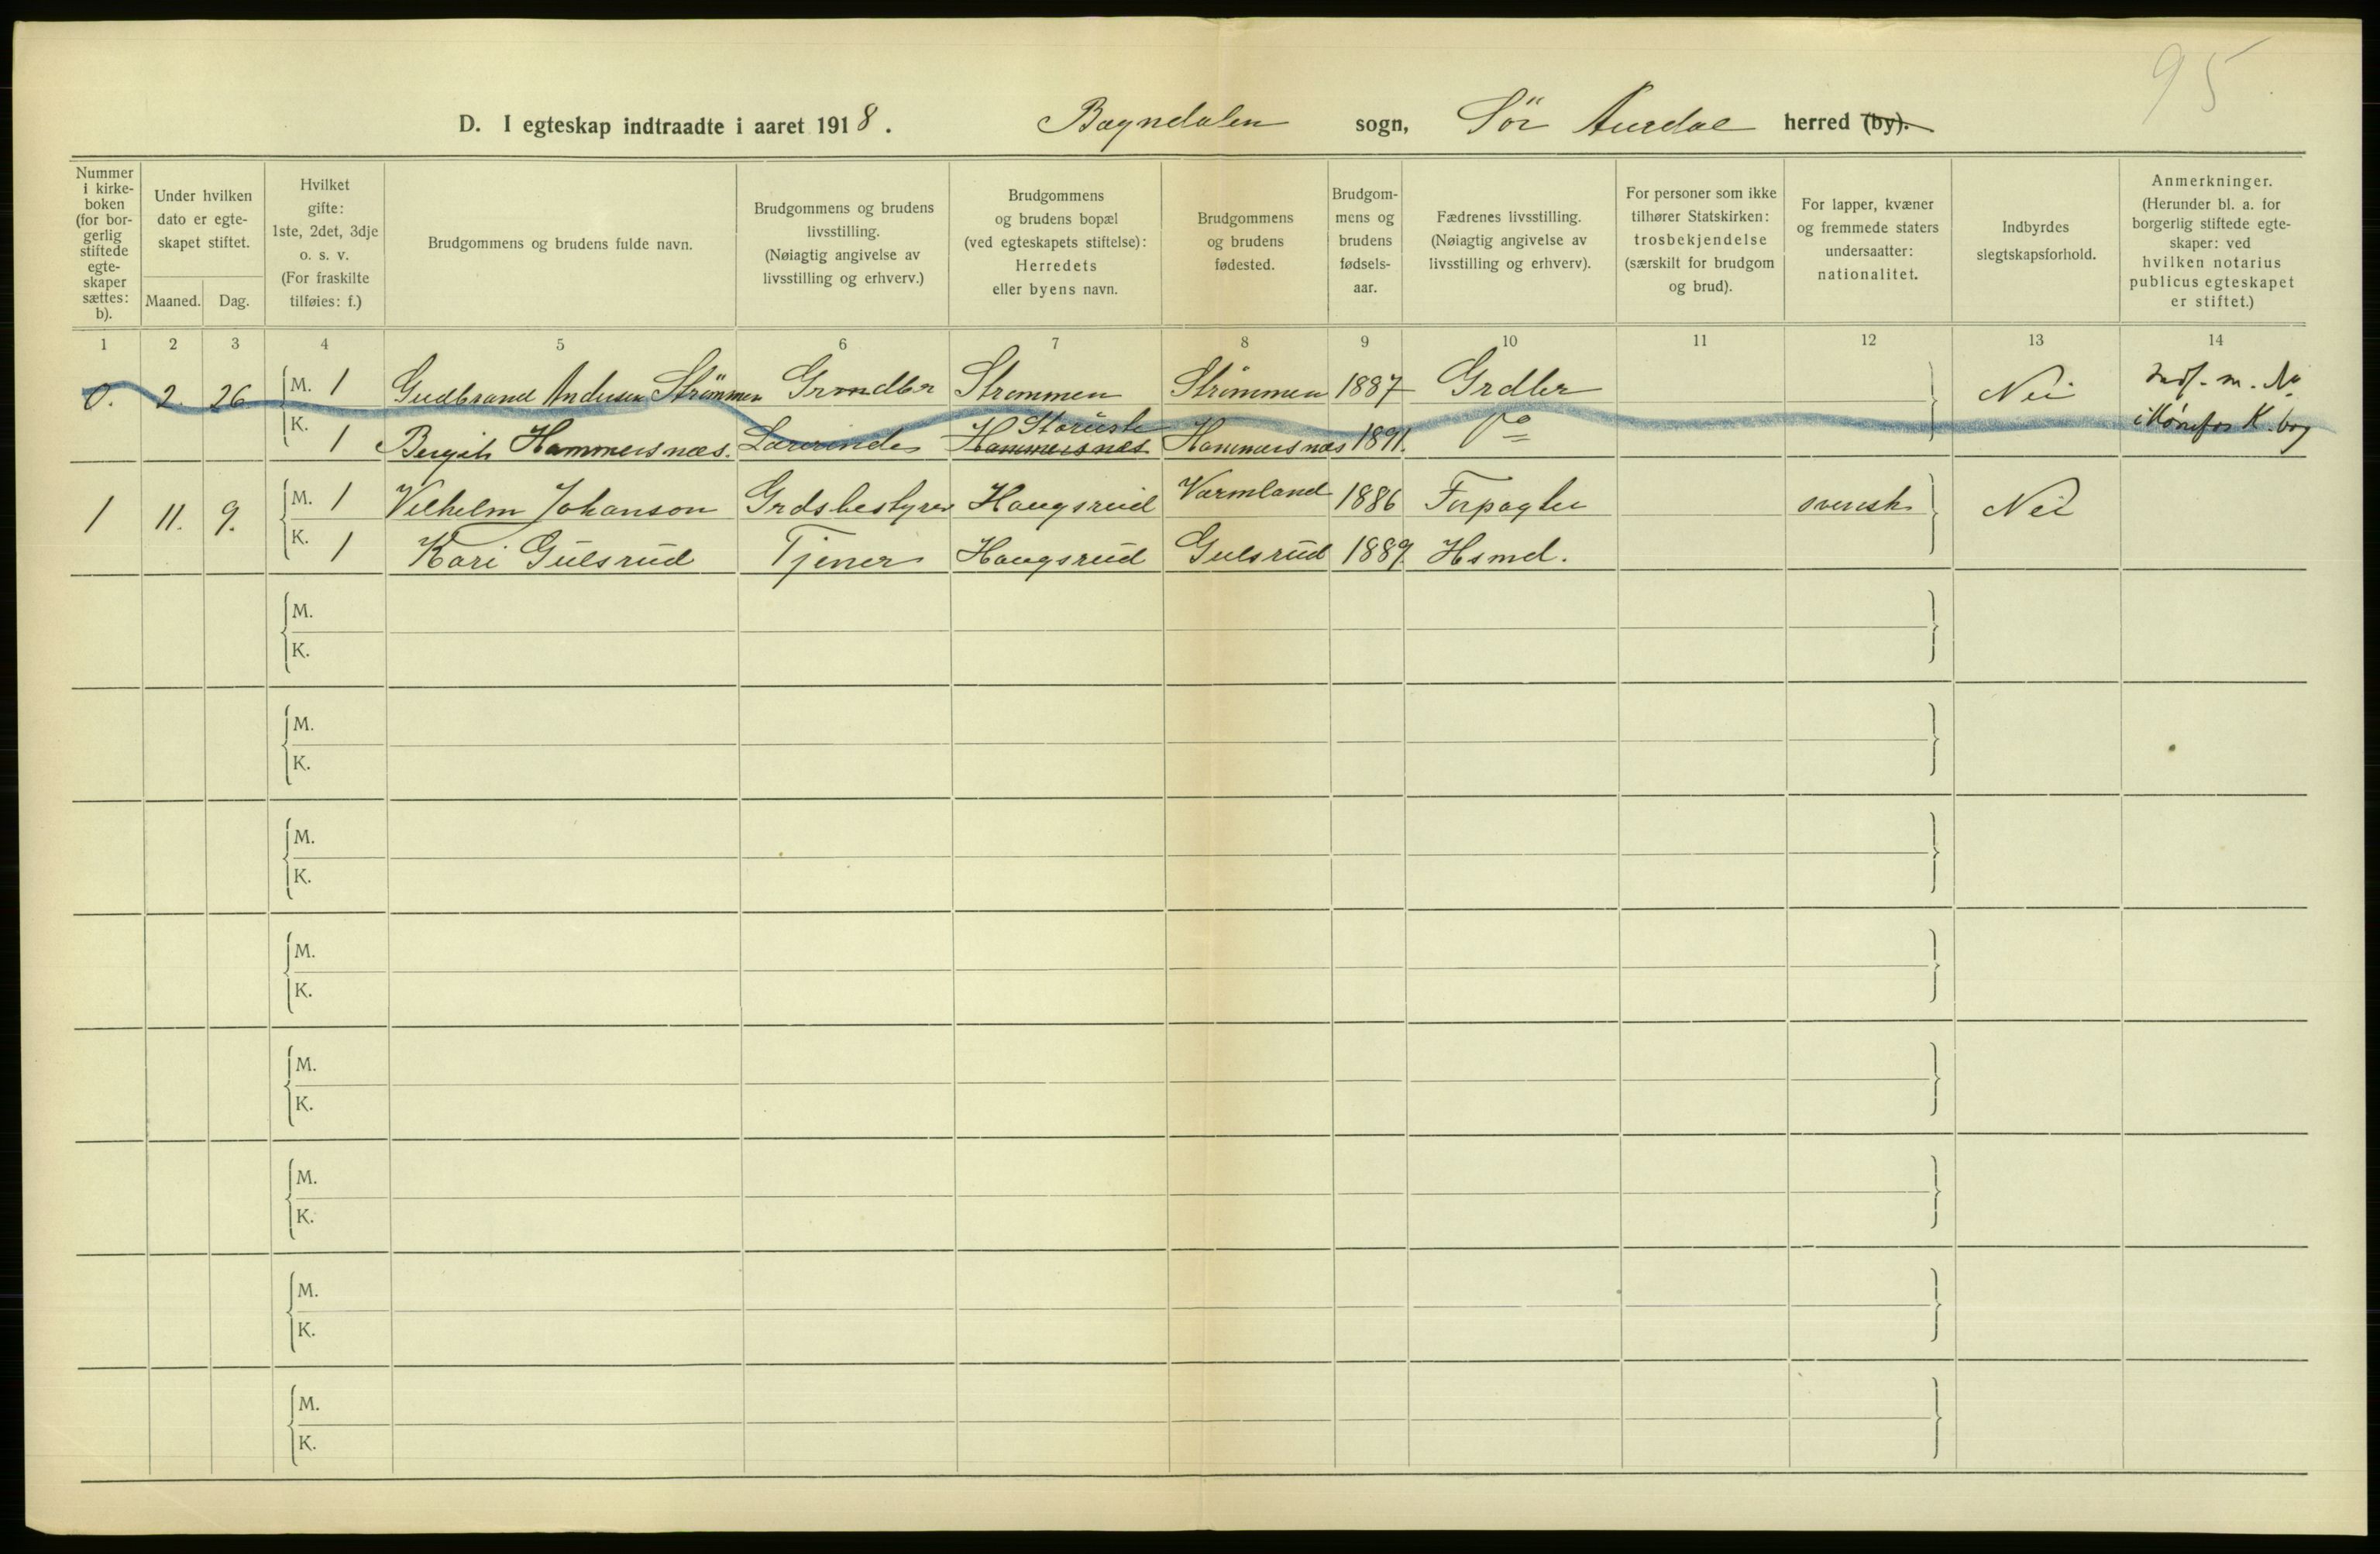 95
D. I egteskap indtraadte i aaret 1918. Bagndalen sogn, Sör Aurdal herred (by).
Nummer i kirke-boken (for bor-gerlig stiftede egte-skaper sættes: b).
Under hvilken dato er egte-skapet stiftet.
Maaned. Dag.
Hvilket gifte: 1ste, 2det, 3dje o. s. v. (For fraskilte tilføies: f.)
Brudgommens og brudens fulde navn.
Brudgommens og brudens livsstilling. (Nøiagtig angivelse av livsstilling og erhverv.)
Brudgommens og brudens bopæl (ved egteskapets stiftelse): Herredets eller byens navn.
Brudgommens og brudens fødested.
Brudgom-mens og brudens fødsels-aar.
Fædrenes livsstilling. (Nøiagtig angivelse av livsstilling og erhverv).
For personer som ikke tilhører Statskirken: trosbekjendelse (særskilt for brudgom og brud).
For lapper, kvæner og fremmede staters undersaatter: nationalitet.
Indbyrdes slegtskapsforhold.
Anmerkninger. (Herunder bl. a. for borgerlig stiftede egte-skaper: ved hvilken notarius publicus egteskapet er stiftet.)
1 2 3 4 5 6 7 8 9 10 11 12 13 14
0. 2. 26 M. 1 Gudbrand Andersen Strömmen Grmdbr Strömmen Strömmen 1887 Grdbr Nei Indf. m. No
Storuste
K. 1 Bergit Hammersnæs. Lærerinde Hammersnæs Hammersnæs 1891. Do i K.bog
1 11. 9. M. 1 Vilhelm Johanson Grdsbestyrer Haugsrud Varmland 1886 Forpagter svensk Nei
K. 1 Kari Gulsrud Tjener Haugsrud Gulsrud 1889 Hsmd.
M.
K.
M.
K.
M.
K.
M.
K.
M.
K.
M.
K.
M.
K.
M.
K.